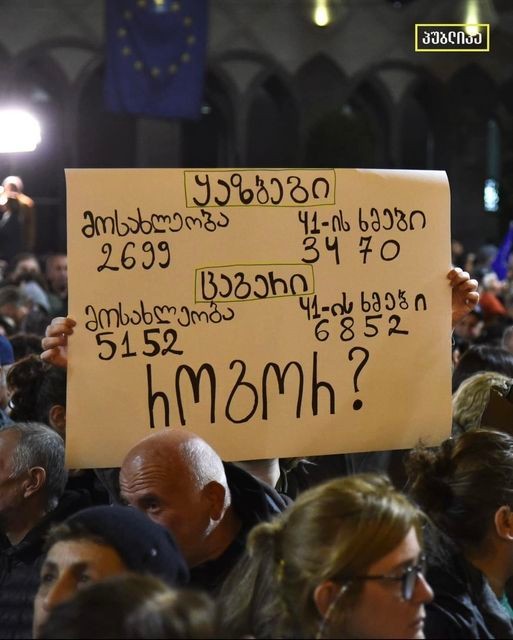 პუბლიკა
ყაზბეგი
მოსახლეობა 41-ის ხმები
2699 3470
ცაგერი
მოსახლეობა 41-ის ხმები
5152 6852
როგორ?